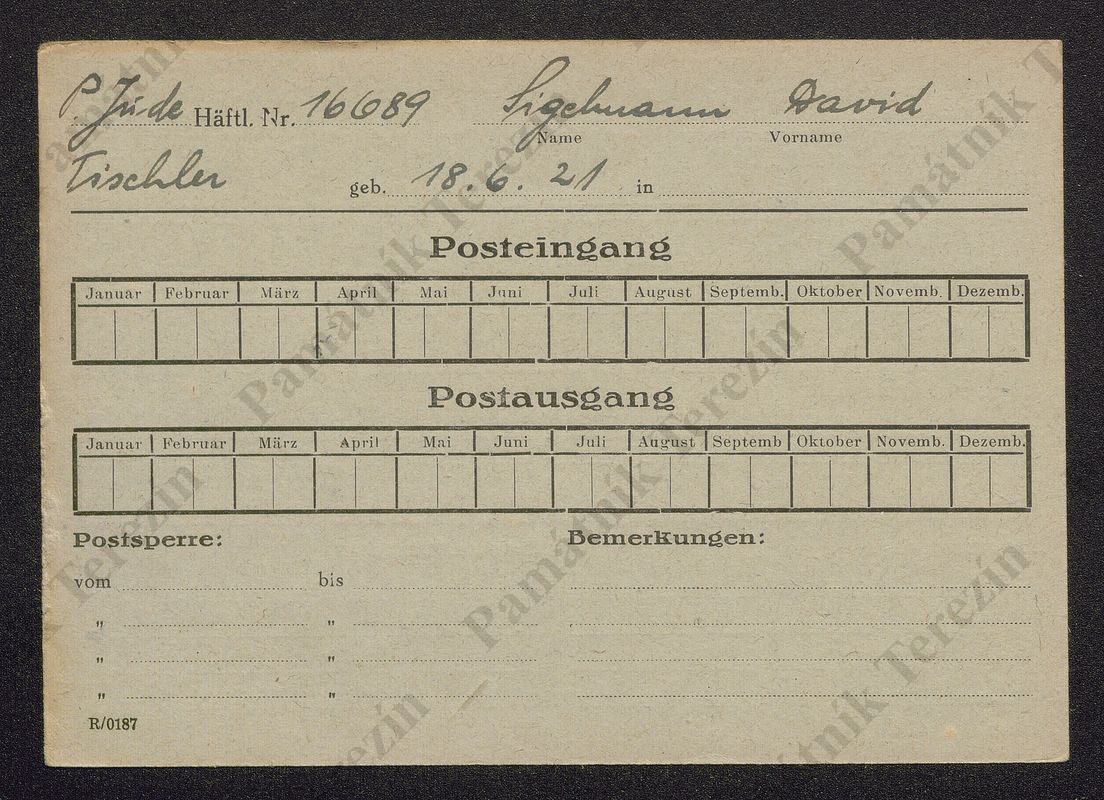 P. Jude Häftl. Nr. 16689 Sigelmann David
Name Vorname
Tischler geb. 18.6.21 in
Posteingang
Januar Februar März April Mai Juni Juli August Septemb. Oktober Novemb. Dezemb.
Postausgang
Januar Februar März April Mai Juni Juli August Septemb Oktober Novemb. Dezemb.
Postsperre: Bemerkungen:
vom bis
" "
" "
" "
R/0187
Památník Terezín